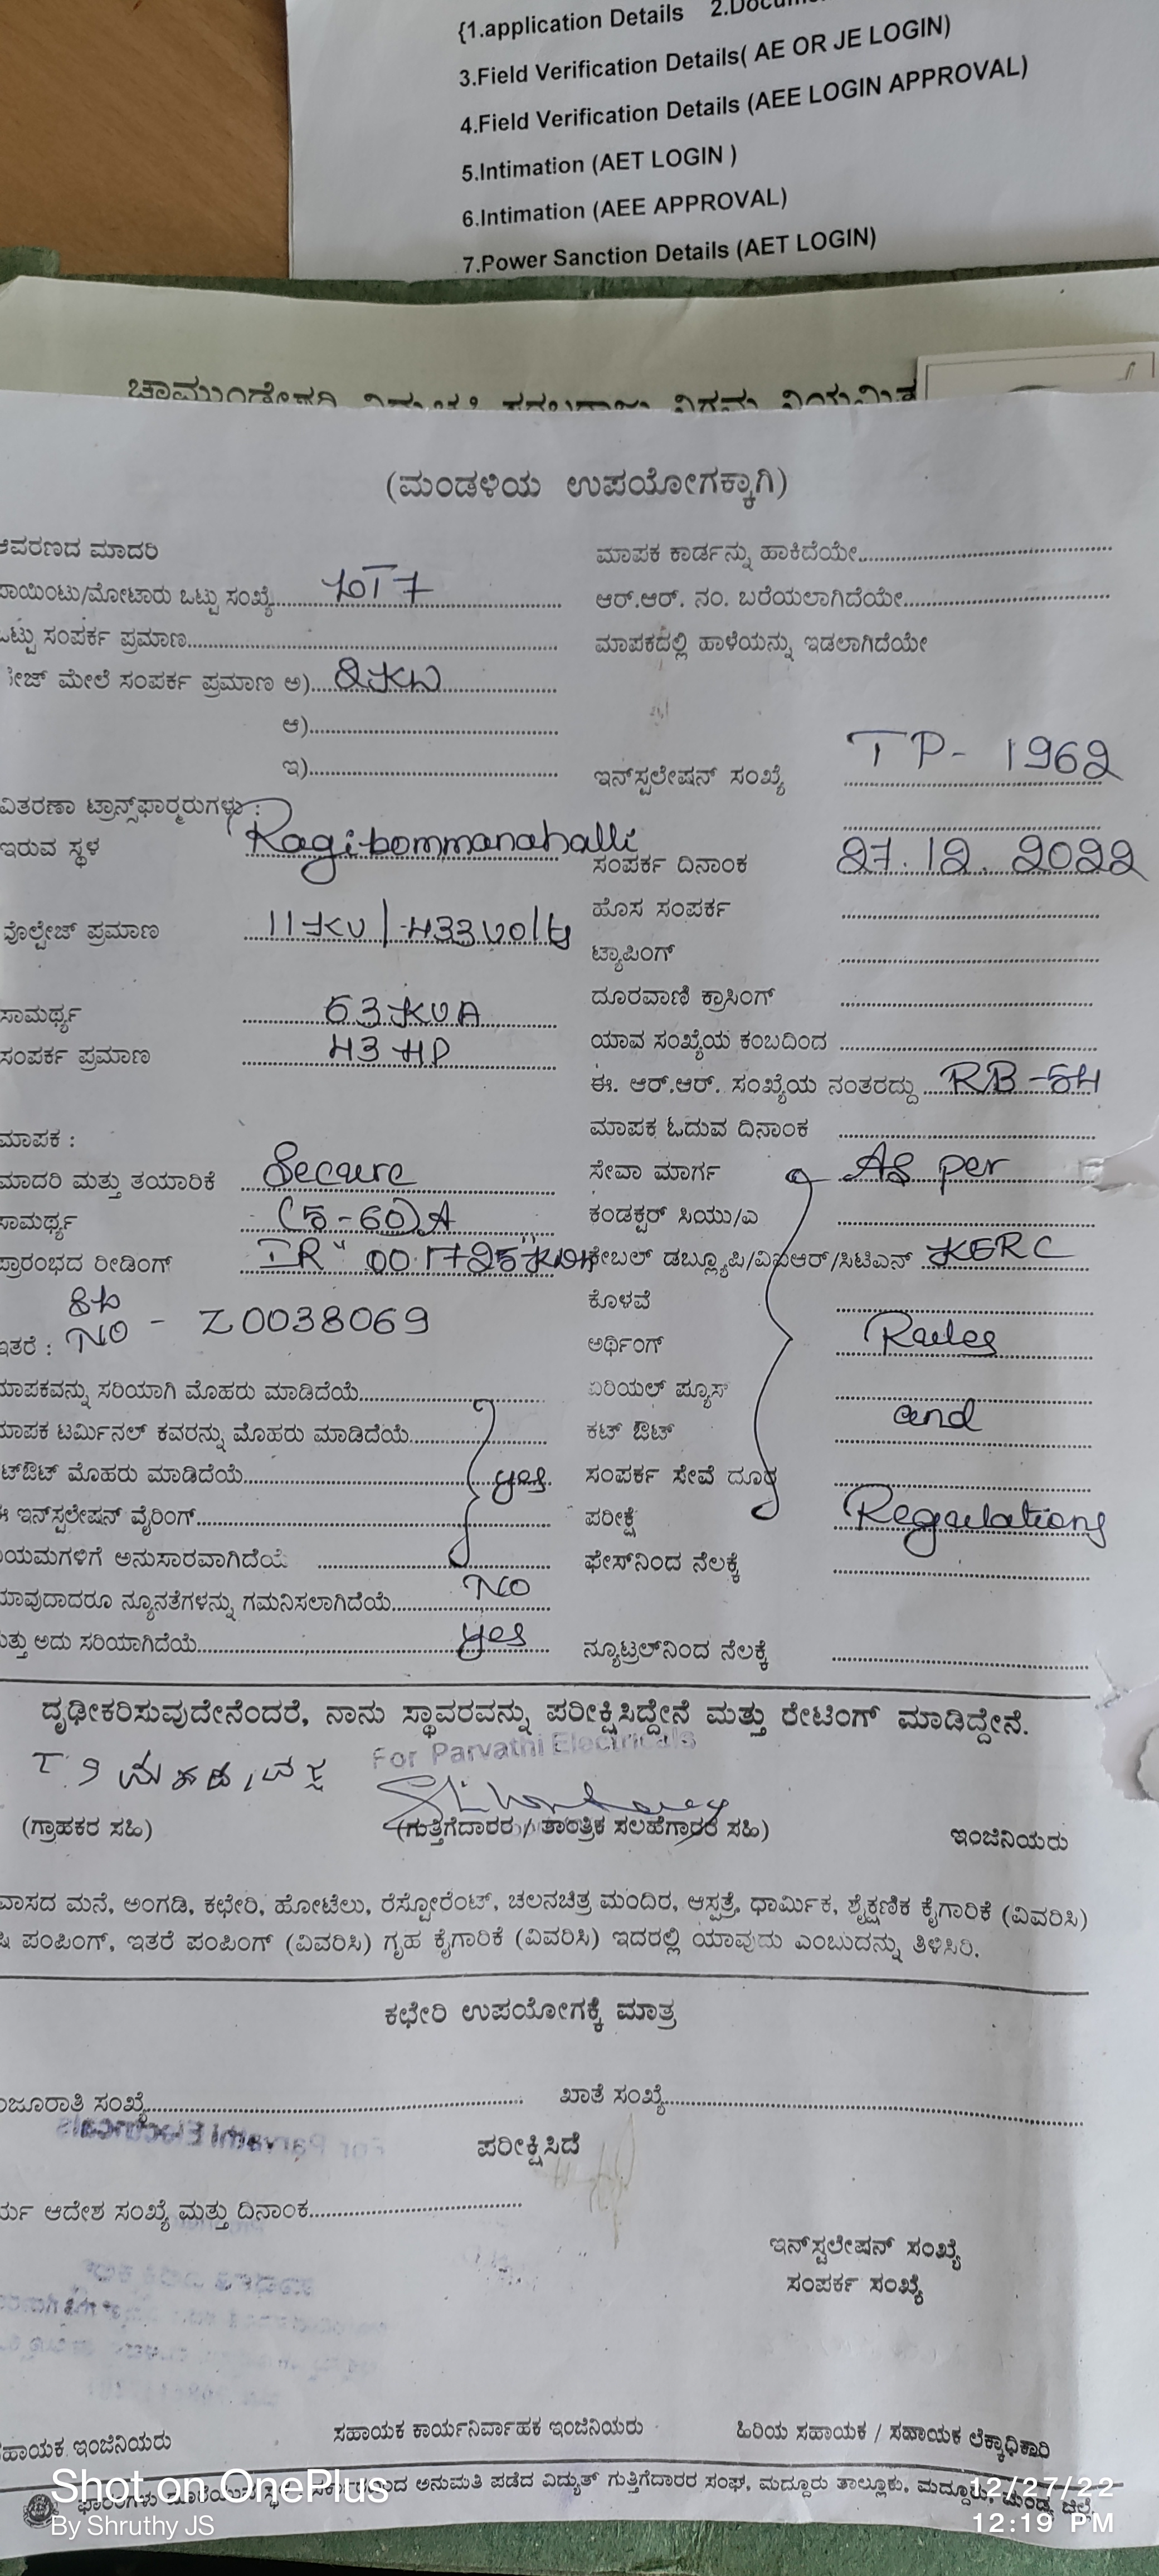 {1.application Details 2.Docum
3.Field Verification Details( AE OR JE LOGIN)
4.Field Verification Details (AEE LOGIN APPROVAL)
5.Intimation (AET LOGIN )
6.Intimation (AEE APPROVAL)
7.Power Sanction Details (AET LOGIN)
(ಮಂಡಳಿಯ ಉಪಯೋಗಕ್ಕಾಗಿ)
ಆವರಣದ ಮಾದರಿ
ಮಾಪಕ ಕಾರ್ಡನ್ನು ಹಾಕಿದೆಯೇ
ಪಾಯಿಂಟು/ಮೋಟಾರು ಒಟ್ಟು ಸಂಖ್ಯೆ
ಆರ್.ಆರ್. ನಂ. ಬರೆಯಲಾಗಿದೆಯೇ
ಒಟ್ಟು ಸಂಪರ್ಕ ಪ್ರಮಾಣ
ಮಾಪಕದಲ್ಲಿ ಹಾಳೆಯನ್ನು ಇಡಲಾಗಿದೆಯೇ
ೇಜ್ ಮೇಲೆ ಸಂಪರ್ಕ ಪ್ರಮಾಣ ಅ) 2KW
ಆ)
ಇ)
ಇನ್‌ಸ್ಟಲೇಷನ್ ಸಂಖ್ಯೆ TP- 1962
ವಿತರಣಾ ಟ್ರಾನ್ಸ್‌ಫಾರ್‍ಮರುಗಳು :
ಇರುವ ಸ್ಥಳ Ragibommanahalli
ಸಂಪರ್ಕ ದಿನಾಂಕ 27.12.2022
ಹೊಸ ಸಂಪರ್ಕ
ವೊಲ್ಟೇಜ್ ಪ್ರಮಾಣ 11KV/433volts
ಟ್ಯಾಪಿಂಗ್
ದೂರವಾಣಿ ಕ್ರಾಸಿಂಗ್
ಸಾಮರ್ಥ್ಯ 63KVA
ಯಾವ ಸಂಖ್ಯೆಯ ಕಂಬದಿಂದ
ಸಂಪರ್ಕ ಪ್ರಮಾಣ 43 HP
ಈ. ಆರ್.ಆರ್. ಸಂಖ್ಯೆಯ ನಂತರದ್ದು RB-54
ಮಾಪಕ :
ಮಾಪಕ ಓದುವ ದಿನಾಂಕ
ಮಾದರಿ ಮತ್ತು ತಯಾರಿಕೆ Secure
ಸೇವಾ ಮಾರ್ಗ As per
ಸಾಮರ್ಥ್ಯ (5-60)A
ಕಂಡಕ್ಟರ್ ಸಿಯು/ಎ
ಪ್ರಾರಂಭದ ರೀಡಿಂಗ್ IR" 001725"KWH
ಕೇಬಲ್ ಡಬ್ಲ್ಯೂಪಿ/ವಿಐಆರ್/ಸಿಟಿಎಸ್ KERC
ಕೊಳವೆ
ಇತರೆ : NO - Z0038069
ಅರ್ಥಿಂಗ್ Rules
ಮಾಪಕವನ್ನು ಸರಿಯಾಗಿ ಮೊಹರು ಮಾಡಿದೆಯೆ
ಏರಿಯಲ್ ಫ್ಯೂಸ್
ಮಾಪಕ ಟರ್ಮಿನಲ್ ಕವರನ್ನು ಮೊಹರು ಮಾಡಿದೆಯೆ
ಕಟ್ ಔಟ್ and
ಟ್‌ಔಟ್ ಮೊಹರು ಮಾಡಿದೆಯೆ yes
ಸಂಪರ್ಕ ಸೇವೆ ದೂರ
ಈ ಇನ್‌ಸ್ಟಲೇಷನ್ ವೈರಿಂಗ್
ಪರೀಕ್ಷೆ Regulations
ಯಮಗಳಿಗೆ ಅನುಸಾರವಾಗಿದೆಯೆ
ಫೇಸ್‌ನಿಂದ ನೆಲಕ್ಕೆ
ಯಾವುದಾದರೂ ನ್ಯೂನತೆಗಳನ್ನು ಗಮನಿಸಲಾಗಿದೆಯೆ NO
ಮತ್ತು ಅದು ಸರಿಯಾಗಿದೆಯೆ yes
ನ್ಯೂಟ್ರಲ್‌ನಿಂದ ನೆಲಕ್ಕೆ
ದೃಢೀಕರಿಸುವುದೇನೆಂದರೆ, ನಾನು ಸ್ಥಾವರವನ್ನು ಪರೀಕ್ಷಿಸಿದ್ದೇನೆ ಮತ್ತು ರೇಟಿಂಗ್ ಮಾಡಿದ್ದೇನೆ.
For Parvathi Electricals
(ಗ್ರಾಹಕರ ಸಹಿ)
(ಗುತ್ತಿಗೆದಾರರ / ತಾಂತ್ರಿಕ ಸಲಹೆಗಾರರ ಸಹಿ)
ಇಂಜಿನಿಯರು
ವಾಸದ ಮನೆ, ಅಂಗಡಿ, ಕಛೇರಿ, ಹೋಟೆಲು, ರೆಸ್ಟೋರೆಂಟ್, ಚಲನಚಿತ್ರ ಮಂದಿರ, ಆಸ್ಪತ್ರೆ, ಧಾರ್ಮಿಕ, ಶೈಕ್ಷಣಿಕ ಕೈಗಾರಿಕೆ (ವಿವರಿಸಿ)
ಪಂಪಿಂಗ್, ಇತರೆ ಪಂಪಿಂಗ್ (ವಿವರಿಸಿ) ಗೃಹ ಕೈಗಾರಿಕೆ (ವಿವರಿಸಿ) ಇದರಲ್ಲಿ ಯಾವುದು ಎಂಬುದನ್ನು ತಿಳಿಸಿರಿ.
ಕಛೇರಿ ಉಪಯೋಗಕ್ಕೆ ಮಾತ್ರ
ಂಜೂರಾತಿ ಸಂಖ್ಯೆ
ಖಾತೆ ಸಂಖ್ಯೆ
ಪರೀಕ್ಷಿಸಿದೆ
ರ್ಯ ಆದೇಶ ಸಂಖ್ಯೆ ಮತ್ತು ದಿನಾಂಕ
ಇನ್‌ಸ್ಟಲೇಷನ್ ಸಂಖ್ಯೆ
ಸಂಪರ್ಕ ಸಂಖ್ಯೆ
ಹಾಯಕ ಇಂಜಿನಿಯರು
ಸಹಾಯಕ ಕಾರ್ಯನಿರ್ವಾಹಕ ಇಂಜಿನಿಯರು
ಹಿರಿಯ ಸಹಾಯಕ / ಸಹಾಯಕ ಲೆಕ್ಕಾಧಿಕಾರಿ
ಅನುಮತಿ ಪಡೆದ ವಿದ್ಯುತ್ ಗುತ್ತಿಗೆದಾರರ ಸಂಘ, ಮದ್ದೂರು ತಾಲ್ಲೂಕು, ಮದ್ದೂರು, ಮಂಡ್ಯ ಜಿಲ್ಲೆ
Shot on OnePlus
By Shruthy JS
12/27/22
12:19 PM